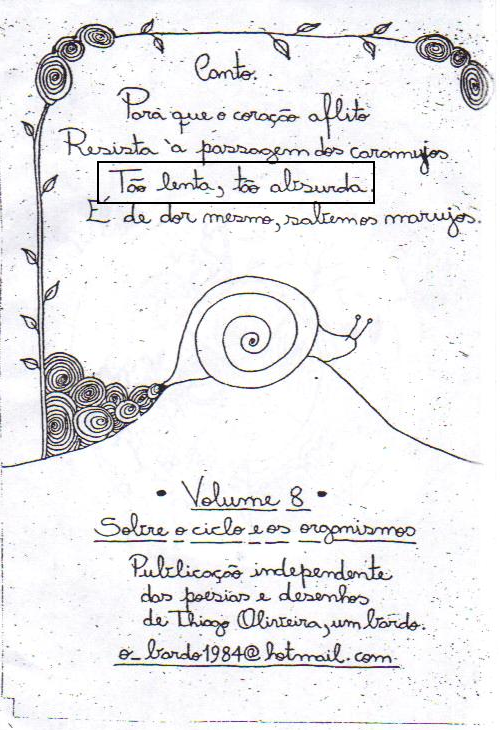 Canto.
Para que o coração aflito
Resista à passagem dos caramujos
Tão lenta, tão absurda.
É de dor mesmo, sabemos marujos.
• Volume 8 •
Sobre o ciclo e os organismos
Publicação independente
das poesias e desenhos
de Thiago Oliveira, um bardo.
o_bardo1984@hotmail.com